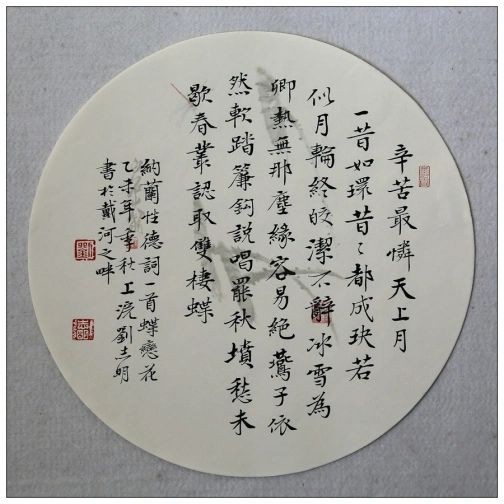 辛苦最憐天上月
一昔如環昔〻都成玦若
似月輪終皎潔不辭冰雪為
卿熱無那塵緣容易絕鷰子依
然軟踏簾鈎說唱罷秋墳愁未
歇春叢認取雙棲蝶
納蘭性德詞一首蝶戀花
乙未年季秋上浣劉志明
書於戴河之畔